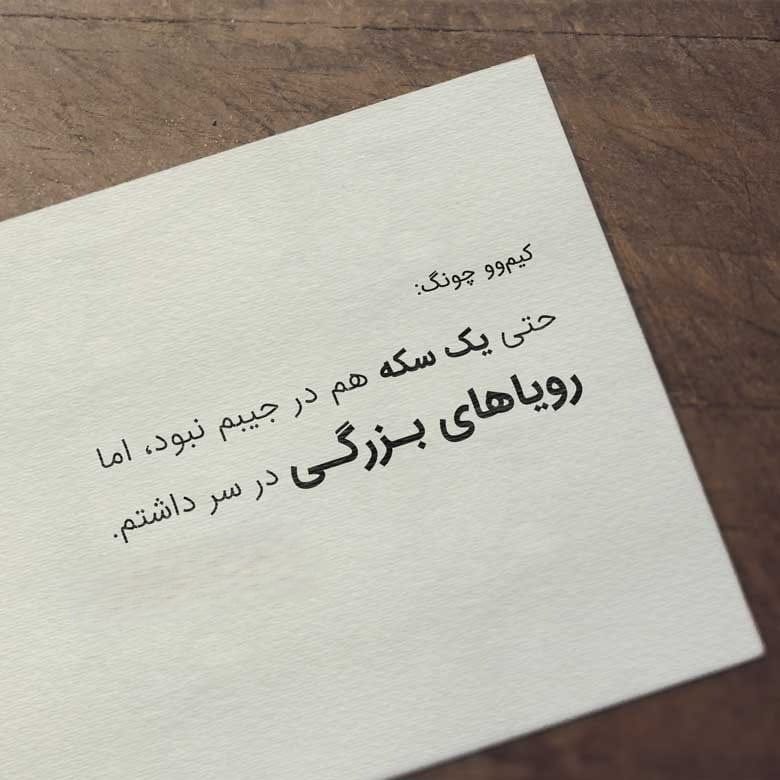 کیم‌وو چونگ:
حتی یک سکه هم در جیبم نبود، اما
رویاهای بزرگی در سر داشتم.